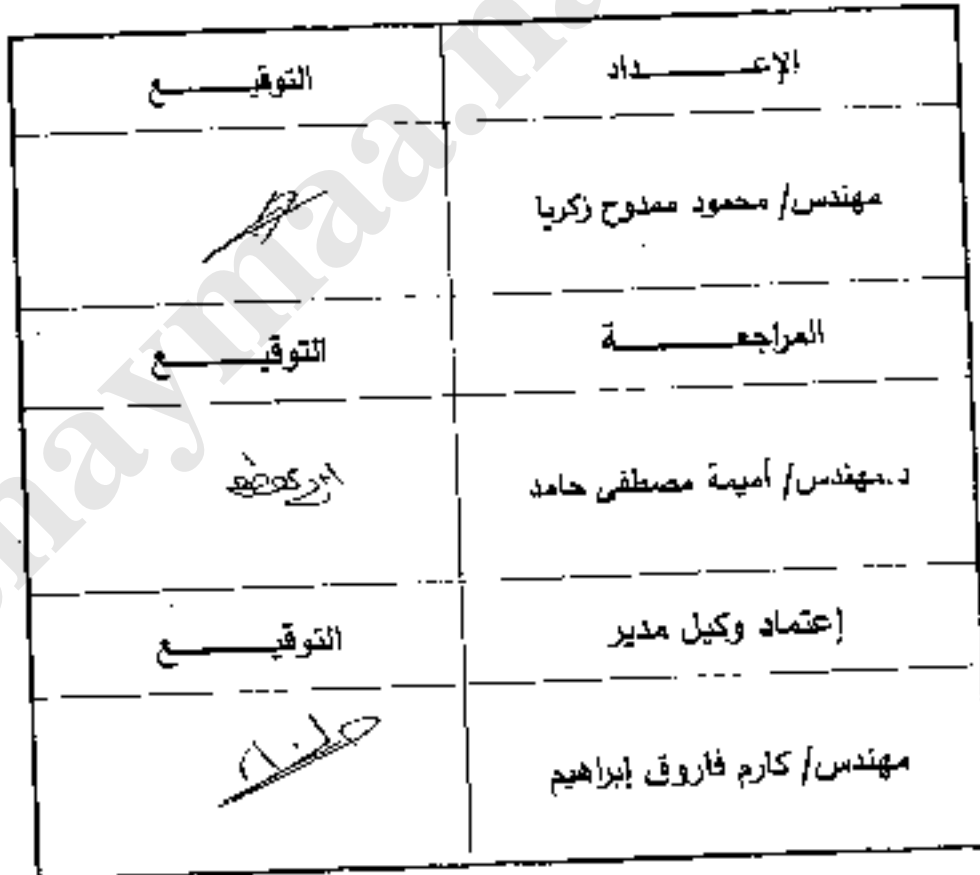 الإعـــــداد التوقيـــــع
مهندس/ محمود ممدوح زكريا
المراجعـــــة التوقيـــــع
د.مهندس/ أميمة مصطفى حامد
إعتماد وكيل مدير التوقيـــــع
مهندس/ كارم فاروق إبراهيم